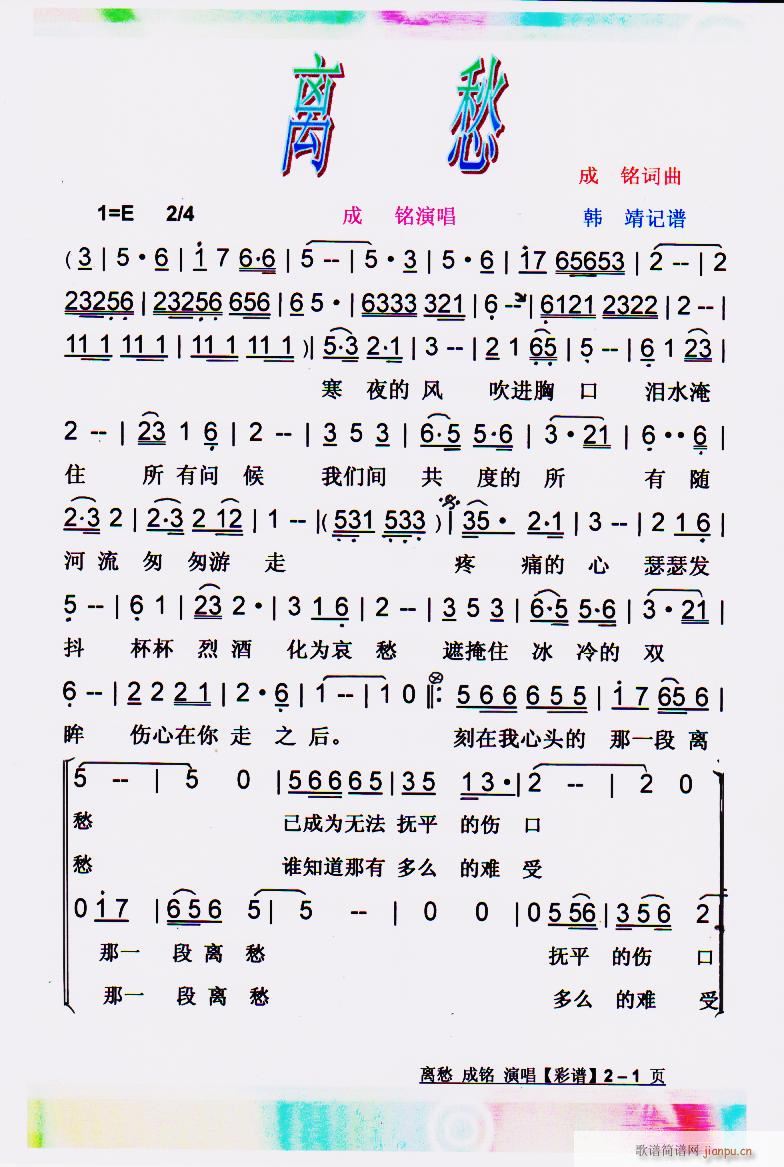 离 愁
成 铭词曲
1=E 2/4 成 铭演唱 韩 靖记谱
(3 | 5 · 6 | 1 7 6·6 | 5 -- | 5 · 3 | 5 · 6 | 17 65653 | 2 -- | 2
23256 | 23256 656 | 6 5 · | 6333 321 | 6 -- | 6121 2322 | 2 --
11 1 11 1 | 11 1 11 1 )| 5·3 2·1 | 3 -- | 2 1 65 | 5 -- | 6 1 23 |
寒 夜的 风 吹进胸 口 泪水淹
2 -- | 23 1 6 | 2 -- | 3 5 3 | 6·5 5·6 | 3 · 21 | 6 ·· 6 |
住 所有问 候 我们间 共 度的 所 有 随
2·3 2 | 2·3 2 12 | 1 -- |( 531 533 )| 35 · 2·1 | 3 -- | 2 1 6 |
河 流 匆 匆游 走 疼 痛的 心 瑟瑟发
5 -- | 6 · 1 | 23 2 · | 3 1 6 | 2 -- | 3 5 3 | 6·5 5·6 | 3 · 21 |
抖 杯杯 烈 酒 化为哀 愁 遮掩住 冰 冷的 双
6 -- | 2 2 2 1 | 2 · 6 | 1 -- | 1 0 ‖: 5 6 6 6 5 5 | 1 7 65 6 |
眸 伤心在你 走 之 后。 刻在我心头的 那一段 离
5 -- | 5 0 | 5 6 6 6 5 | 3 5 1 3 · | 2 -- | 2 0
愁 已成为无法 抚平 的伤 口
愁 谁知道那有 多么 的难 受
0 1 7 | 6 5 6 5 | 5 -- | 0 0 | 0 5 56 | 3 5 6 2
那一 段 离 愁 抚平 的伤 口
那一 段 离 愁 多么 的难 受
离愁 成铭 演唱【彩谱】2－1 页
歌谱简谱网 jianpu.cn